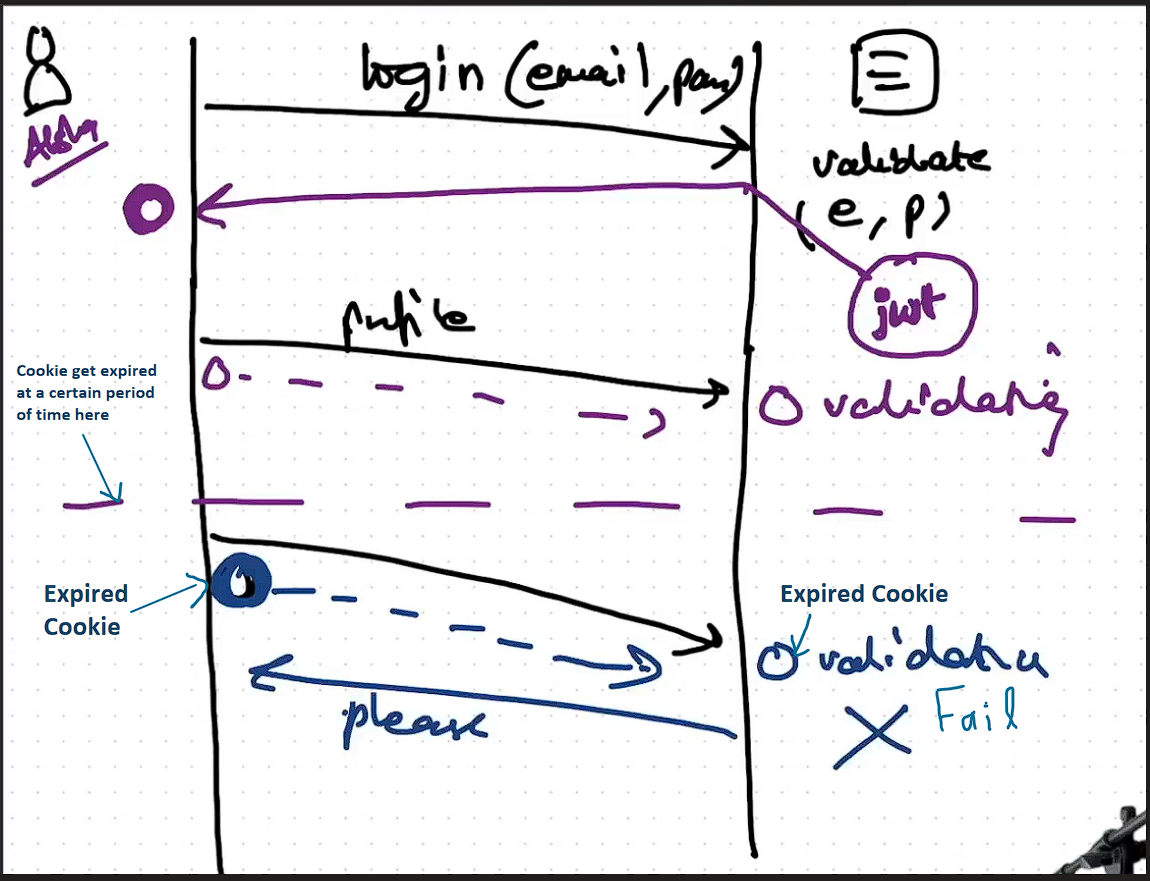 login (email, pass)
validate
(e, p)
jwt
profile
Cookie get expired
at a certain period
of time here
validating
Expired
Cookie
Expired Cookie
validation
Fail
please